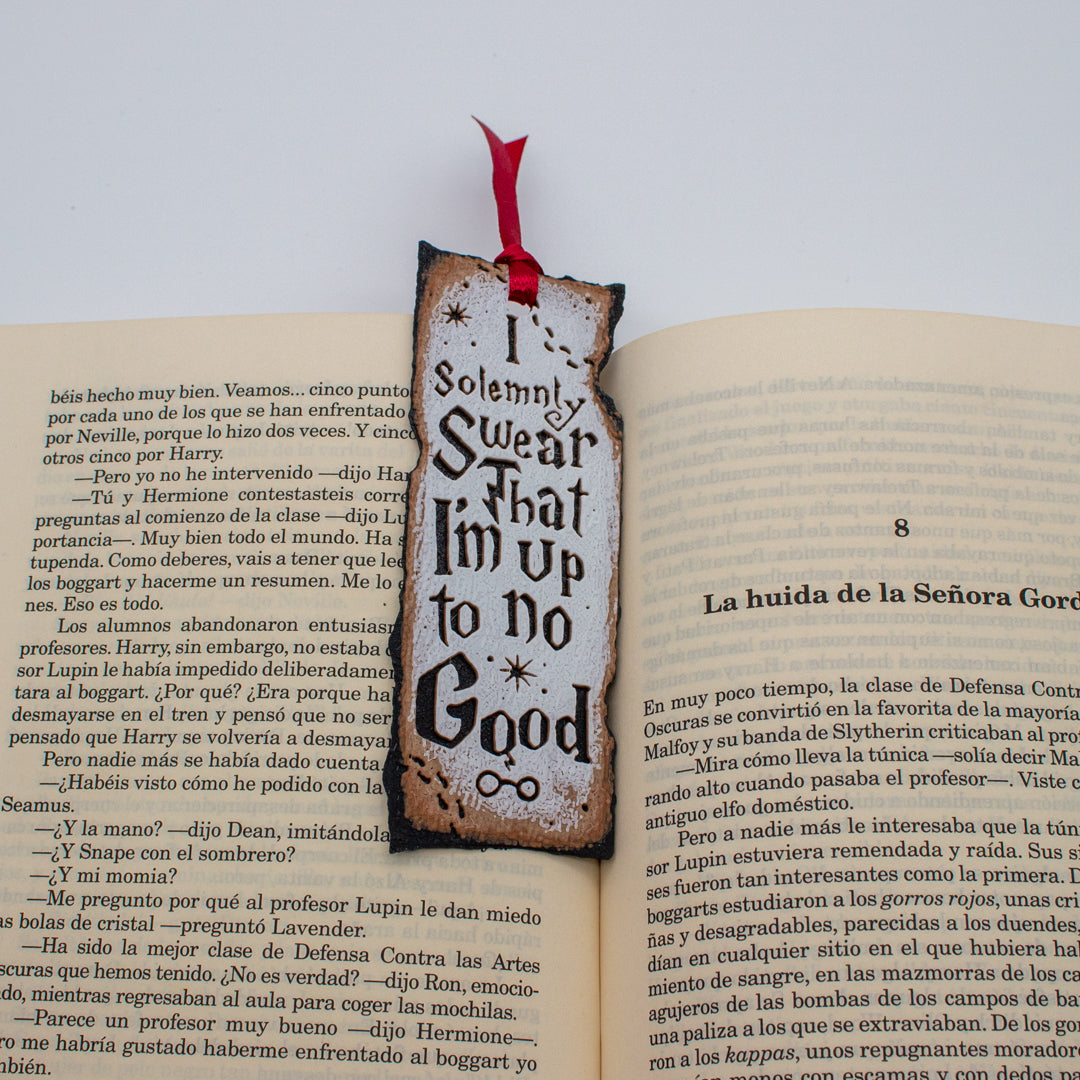 I
Solemnly
Swear
That
I'm up
to no
Good
béis hecho muy bien. Veamos... cinco punto
por cada uno de los que se han enfrentado
por Neville, porque lo hizo dos veces. Y cinco
otros cinco por Harry.
—Pero yo no he intervenido —dijo Har
—Tú y Hermione contestasteis corre
preguntas al comienzo de la clase —dijo Lu
portancia—. Muy bien todo el mundo. Ha s
tupenda. Como deberes, vais a tener que lee
los boggart y hacerme un resumen. Me lo e
nes. Eso es todo.
Los alumnos abandonaron entusiasm
profesores. Harry, sin embargo, no estaba
sor Lupin le había impedido deliberadamen
tara al boggart. ¿Por qué? ¿Era porque ha
desmayarse en el tren y pensó que no ser
pensado que Harry se volvería a desmaya
Pero nadie más se había dado cuenta
—¿Habéis visto cómo he podido con la
Seamus.
—¿Y la mano? —dijo Dean, imitándola
—¿Y Snape con el sombrero?
—¿Y mi momia?
—Me pregunto por qué al profesor Lupin le dan miedo
as bolas de cristal —preguntó Lavender.
—Ha sido la mejor clase de Defensa Contra las Artes
scuras que hemos tenido. ¿No es verdad? —dijo Ron, emocio-
do, mientras regresaban al aula para coger las mochilas.
—Parece un profesor muy bueno —dijo Hermione—.
ro me habría gustado haberme enfrentado al boggart yo
mbién.
8
La huida de la Señora Gord
En muy poco tiempo, la clase de Defensa Contr
Oscuras se convirtió en la favorita de la mayoría
Malfoy y su banda de Slytherin criticaban al pro
—Mira cómo lleva la túnica —solía decir Ma
rando alto cuando pasaba el profesor—. Viste c
antiguo elfo doméstico.
Pero a nadie más le interesaba que la tún
sor Lupin estuviera remendada y raída. Sus si
ses fueron tan interesantes como la primera. D
boggarts estudiaron a los gorros rojos, unas cri
ñas y desagradables, parecidas a los duendes,
dían en cualquier sitio en el que hubiera hab
miento de sangre, en las mazmorras de los ca
agujeros de las bombas de los campos de ba
una paliza a los que se extraviaban. De los gor
ron a los kappas, unos repugnantes morador
menos con escamas y con dedos pa